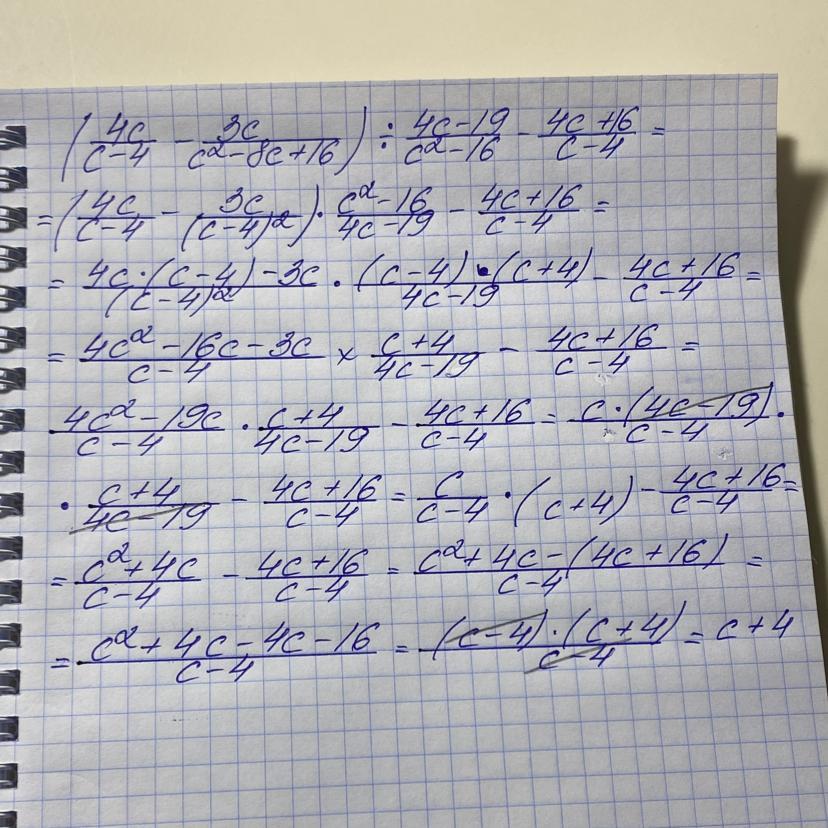 (4c/(c-4) - 3c/(c²-8c+16)) ÷ (4c-19)/(c²-16) - (4c+16)/(c-4) =
= (4c/(c-4) - 3c/(c-4)²) · (c²-16)/(4c-19) - (4c+16)/(c-4) =
= (4c·(c-4)-3c)/(c-4)² · ((c-4)·(c+4))/(4c-19) - (4c+16)/(c-4) =
= (4c²-16c-3c)/(c-4) × (c+4)/(4c-19) - (4c+16)/(c-4) =
(4c²-19c)/(c-4) · (c+4)/(4c-19) - (4c+16)/(c-4) = (c·(4c-19))/(c-4) ·
· (c+4)/(4c-19) - (4c+16)/(c-4) = c/(c-4) · (c+4) - (4c+16)/(c-4) =
= (c²+4c)/(c-4) - (4c+16)/(c-4) = (c²+4c-(4c+16))/(c-4) =
= (c²+4c-4c-16)/(c-4) = ((c-4)·(c+4))/(c-4) = c+4